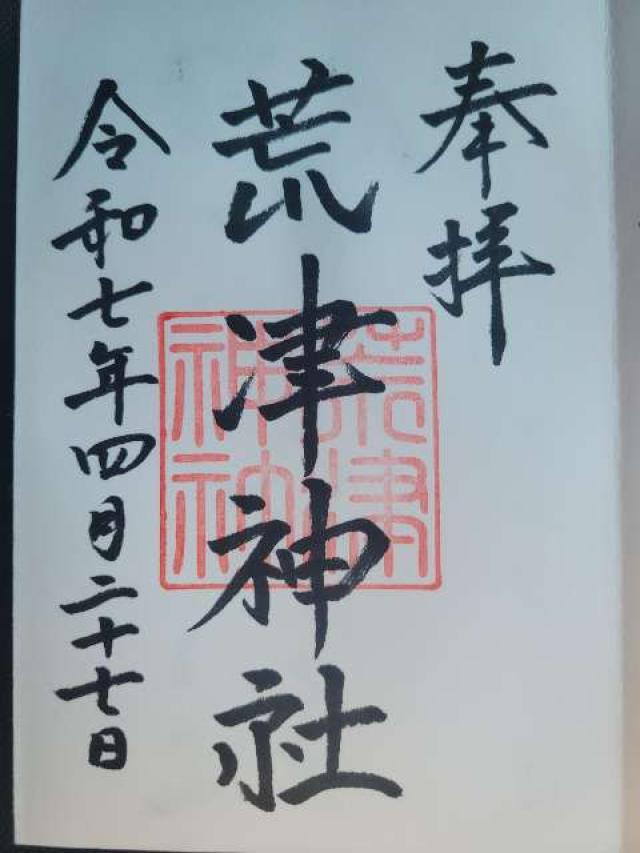 奉拝
荒津神社
令和七年四月二十七日